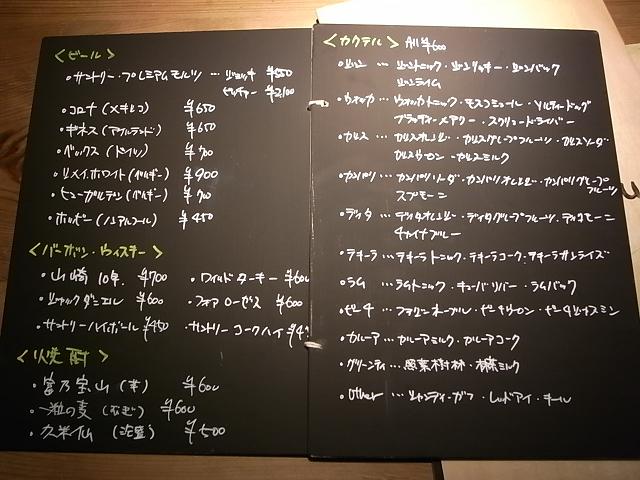 <ビール>
・サントリー・プレミアムモルツ … ジョッキ ¥550
ピッチャー ¥2,100
・コロナ (メキシコ) ¥650
・ギネス (アイルランド) ¥650
・ベックス (ドイツ) ¥700
・リメイホワイト (ベルギー) ¥900
・ヒューガルデン (ベルギー) ¥700
・ホッピー (ノンアルコール) ¥450
<バーボン・ウィスキー>
・山崎 10年 ¥700
・ワイルドターキー ¥600
・ジャックダニエル ¥600
・フォアローゼス ¥600
・サントリーハイボール ¥450
・サントリーコークハイ
<焼酎>
・富乃宝山 (芋) ¥600
・一粒の麦 (むぎ) ¥600
・久米仙 (泡盛) ¥500
<カクテル> All ¥600
・ジン … ジントニック・ジンリッキー・ジンバック
ジンライム
・ウォッカ … ウォッカトニック・モスコミュール・ソルティードッグ
ブラッディ・メアリー・スクリュードライバー
・カルア … カシスオレンジ・カシスグレープフルーツ・カシスソーダ
カシスウーロン・カシスミルク
・カンパリ … カンパリソーダ・カンパリオレンジ・カンパリグレープフルーツ
スプモーニ
・ディタ … ディタオレンジ・ディタグレープフルーツ・ディタモーニ
チャイナブルー
・テキーラ … テキーラトニック・テキーラコーク・テキーラサンライズ
・ラム … ラムトニック・キューバリバー・ラムバック
・ピーチ … ファジーネーブル・ピーチウーロン・ピーチジャスミン
・カルーア … カルーアミルク・カルーアコーク
・グリーンティ … 照葉樹林・抹茶ミルク
・Other … シャンディ・ガフ・レッドアイ・キール